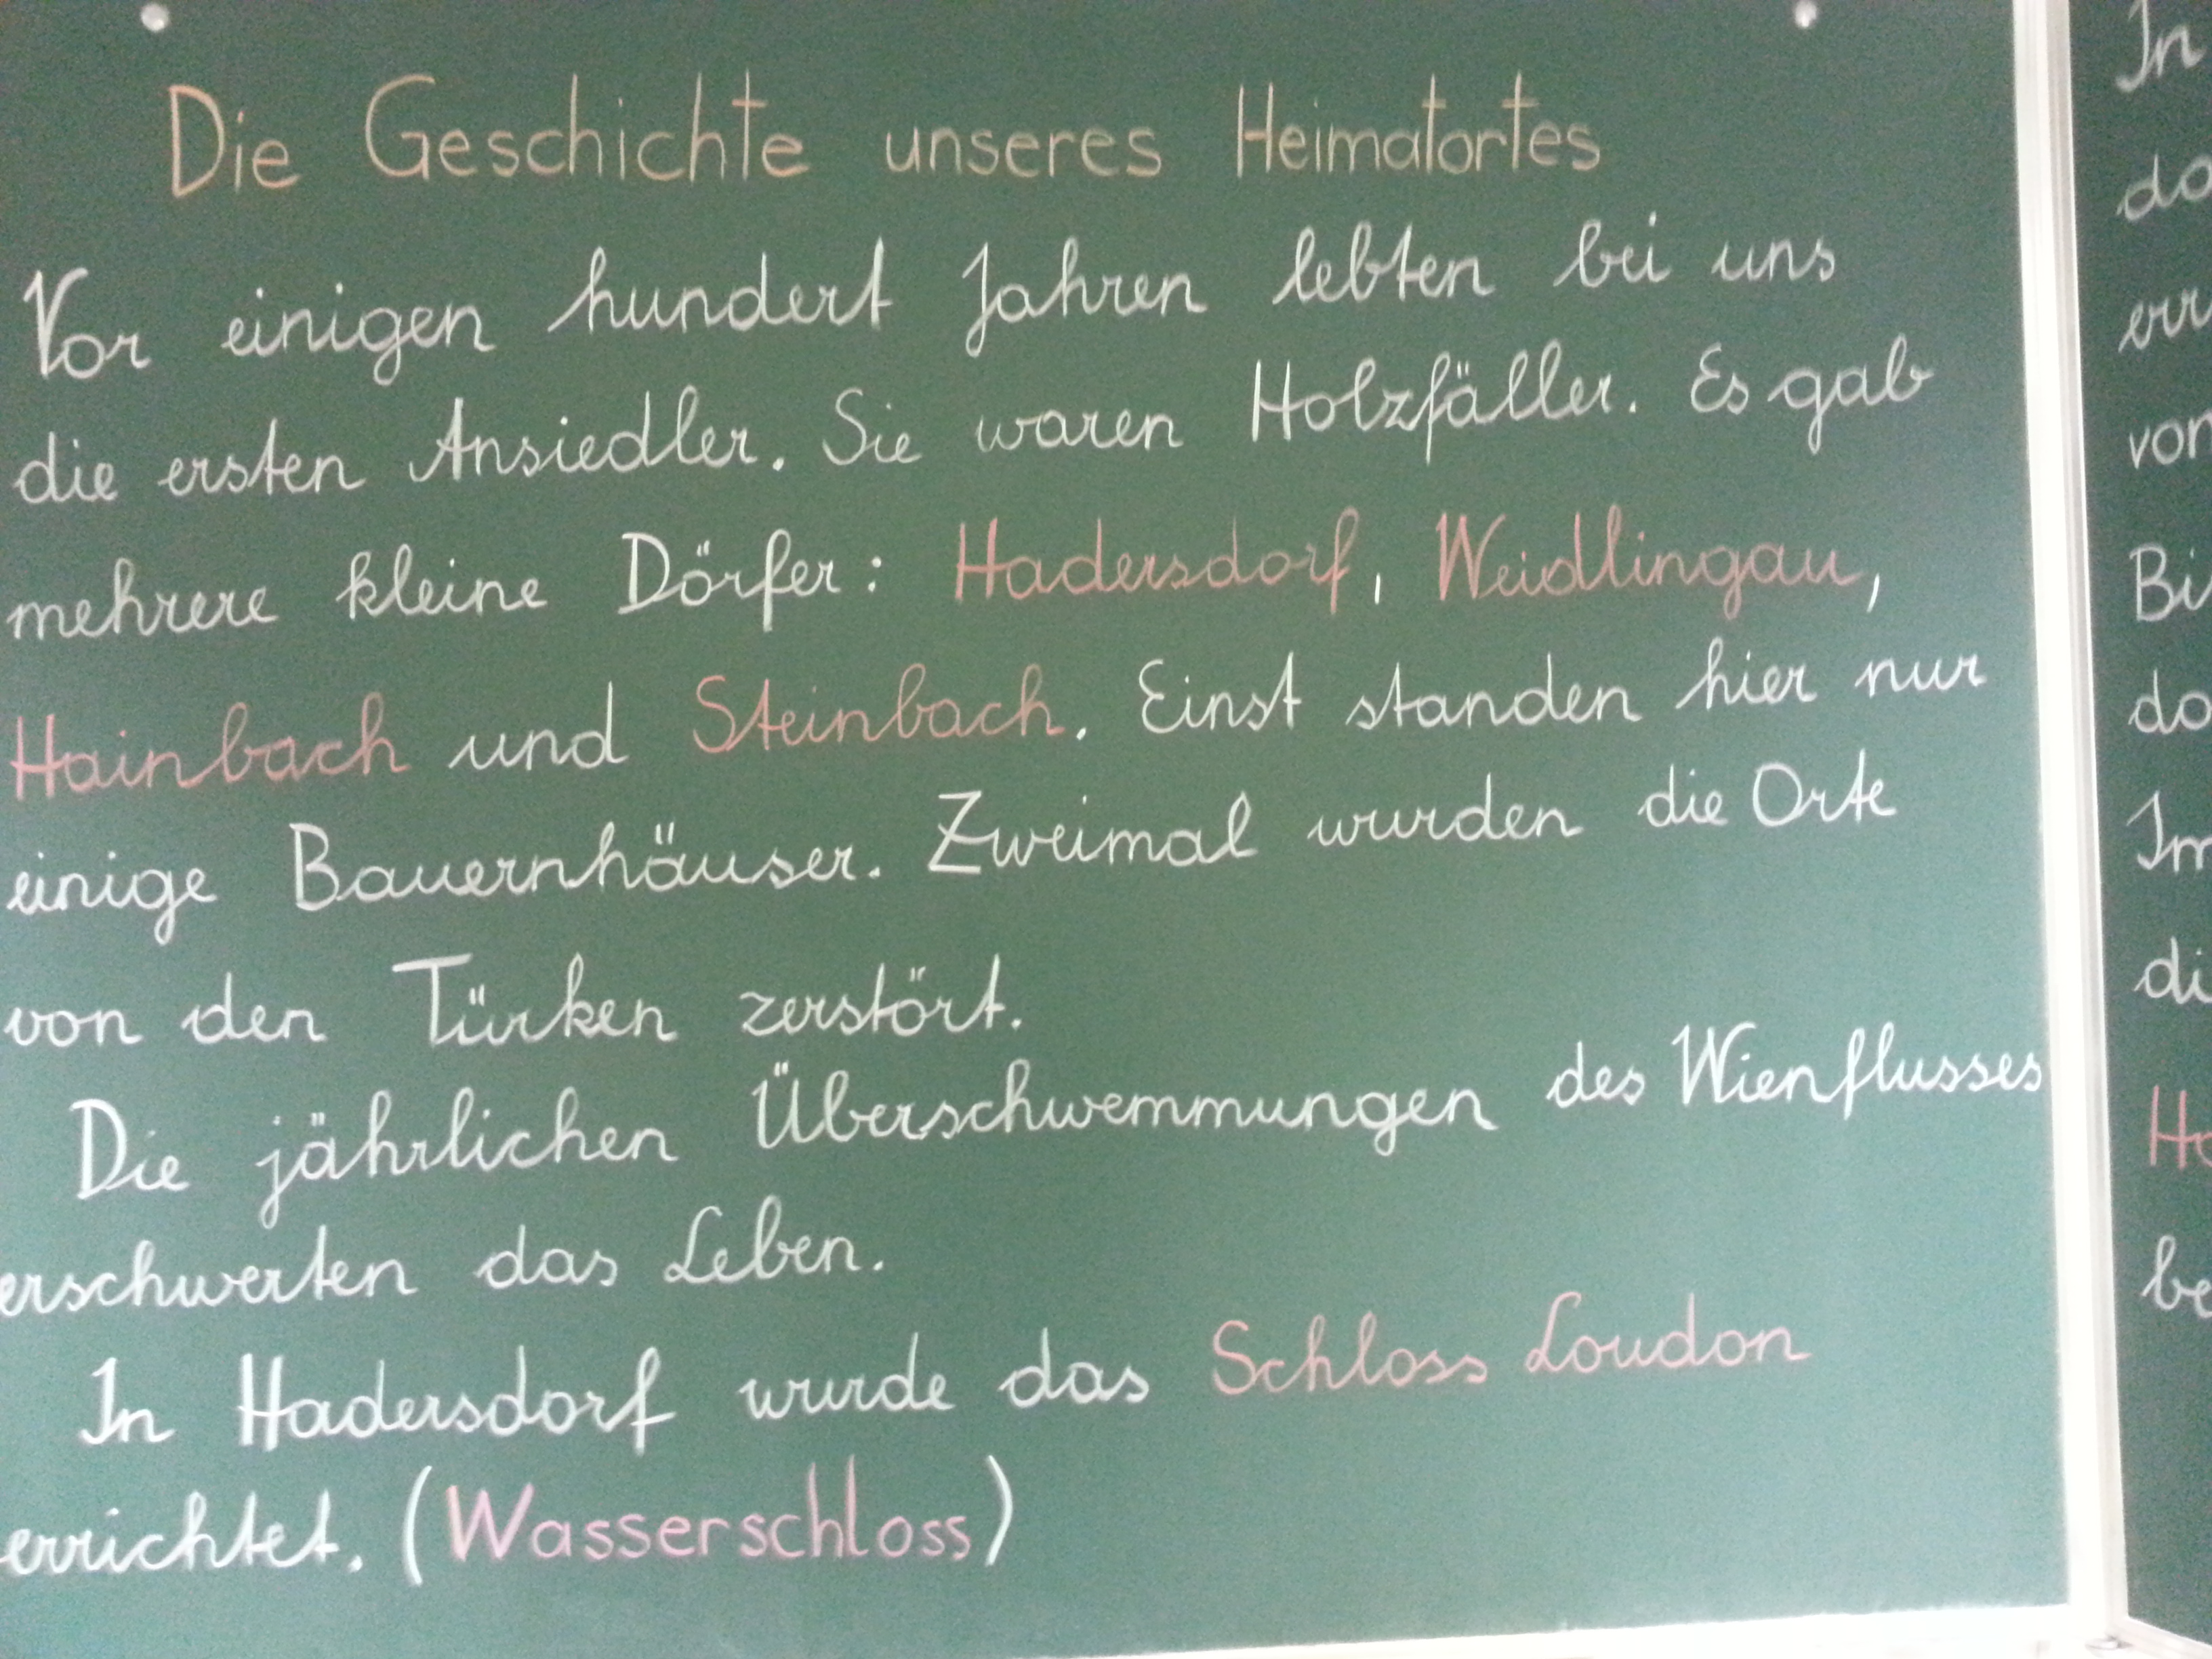 Die Geschichte unseres Heimatortes
Vor einigen hundert Jahren lebten bei uns
die ersten Ansiedler. Sie waren Holzfäller. Es gab
mehrere kleine Dörfer: Hadersdorf, Weidlingau,
Hainbach und Steinbach. Einst standen hier nur
einige Bauernhäuser. Zweimal wurden die Orte
von den Türken zerstört.
Die jährlichen Überschwemmungen des Wienflusses
erschwerten das Leben.
In Hadersdorf wurde das Schloss Loudon
errichtet. (Wasserschloss)
In
von